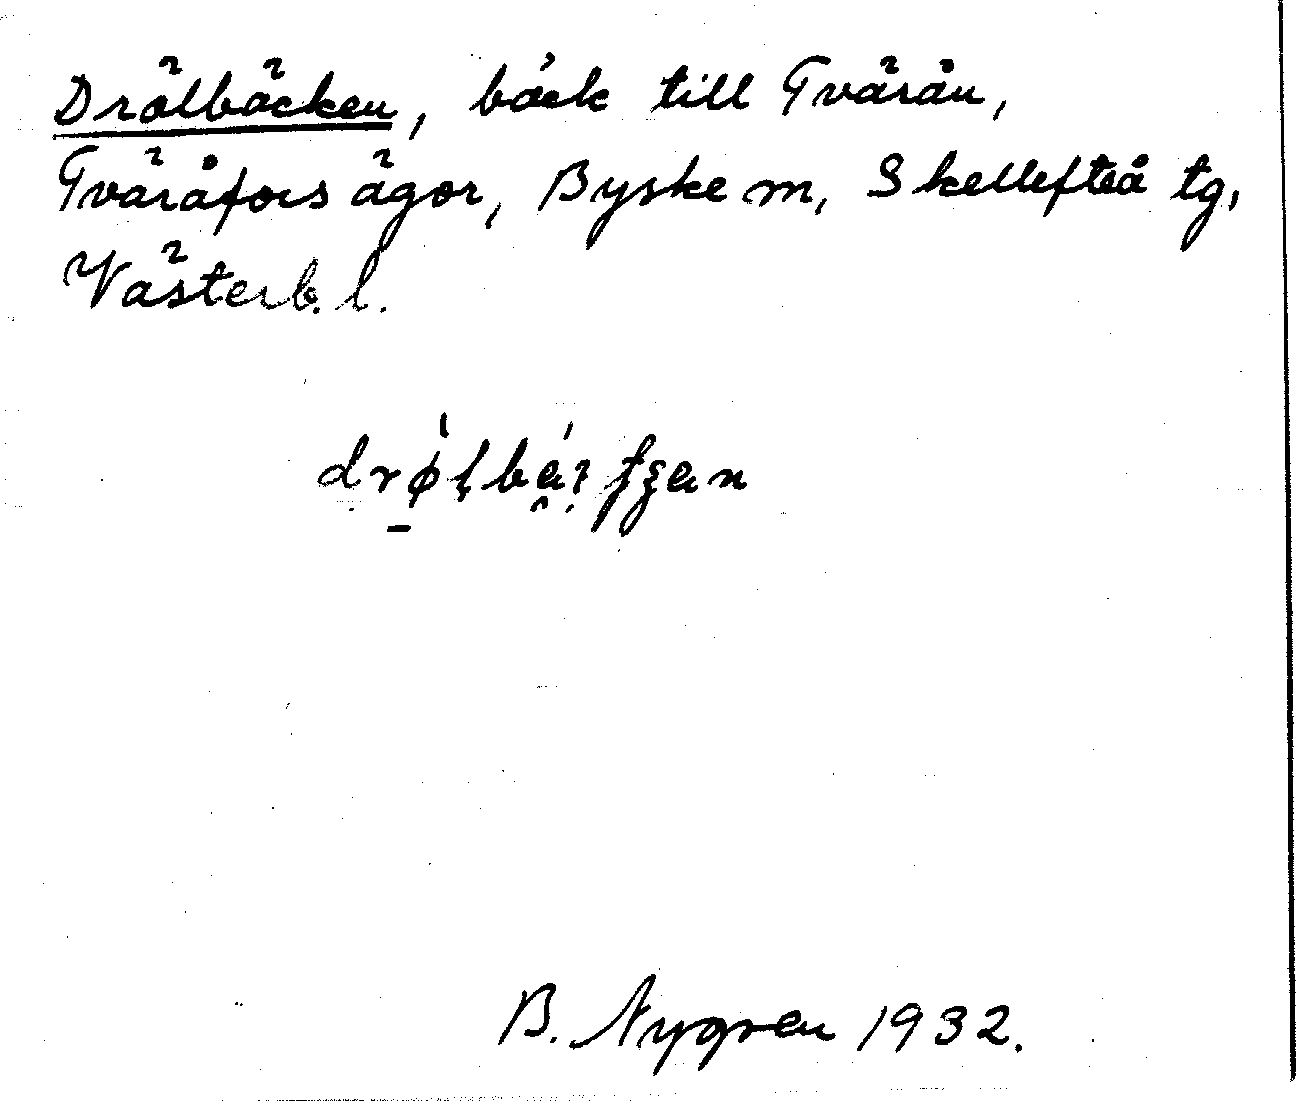 Drälbäcken, bäck till Tvärån,
Tväråfors ägor, Byske m, Skellefteå tg,
Västerb. l.
B. Nygren 1932.